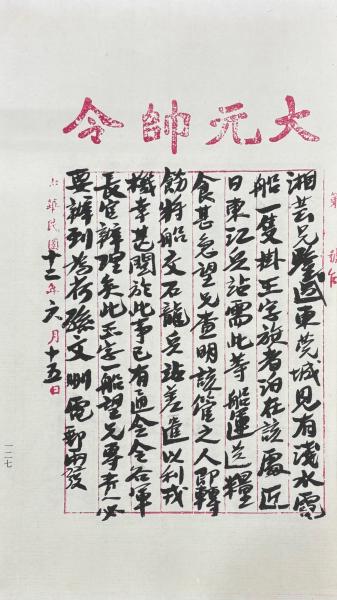 大元帥令
第 號 台
湘芸兄鑒過東莞城見有淺水電
船一隻掛王字旗者泊在該處近
日東江兵站需此等船運送糧
食甚急望兄查明該管之人即轉
飭將船交石龍兵站差遣以利戎
機幸甚關於此事已有通令令各軍
長官辦理矣此不過一船望兄專責必
要辦到為荷孫文刪電郵局發
中華民國十二年六月十五日
一二七